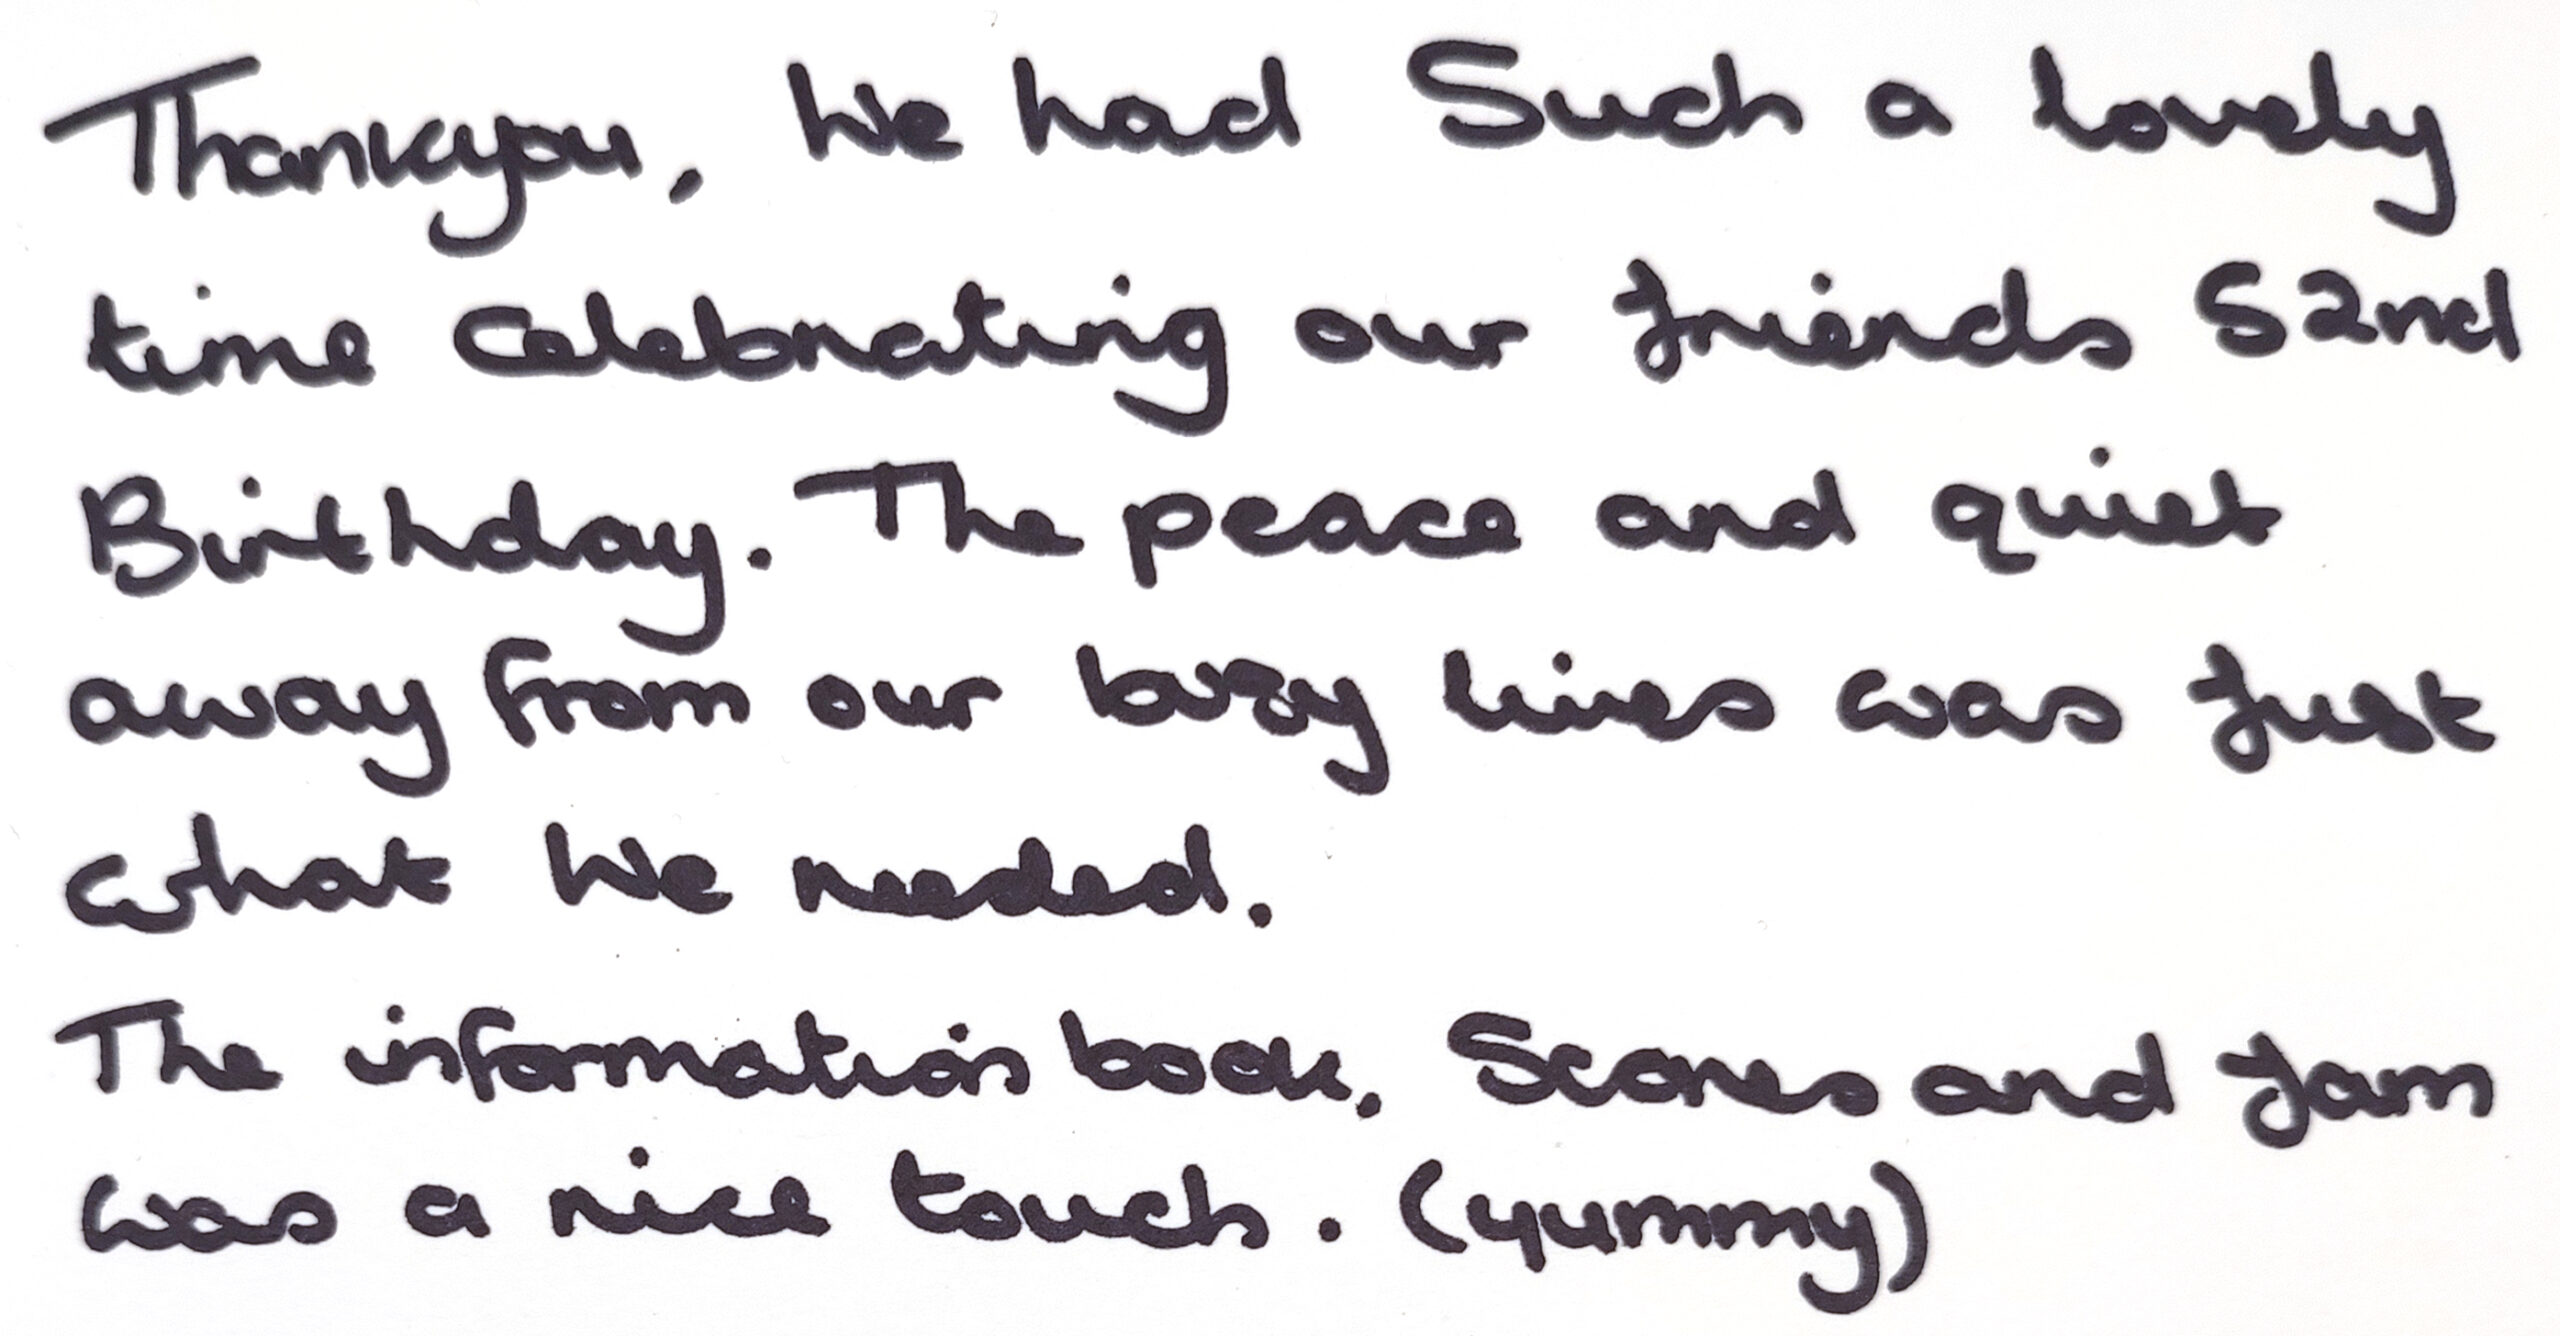 Thankyou, We had Such a lovely
time celebrating our friends 52nd
Birthday. The peace and quiet
away from our busy lives was just
what we needed.
The information book, Scones and jam
was a nice touch. (yummy)